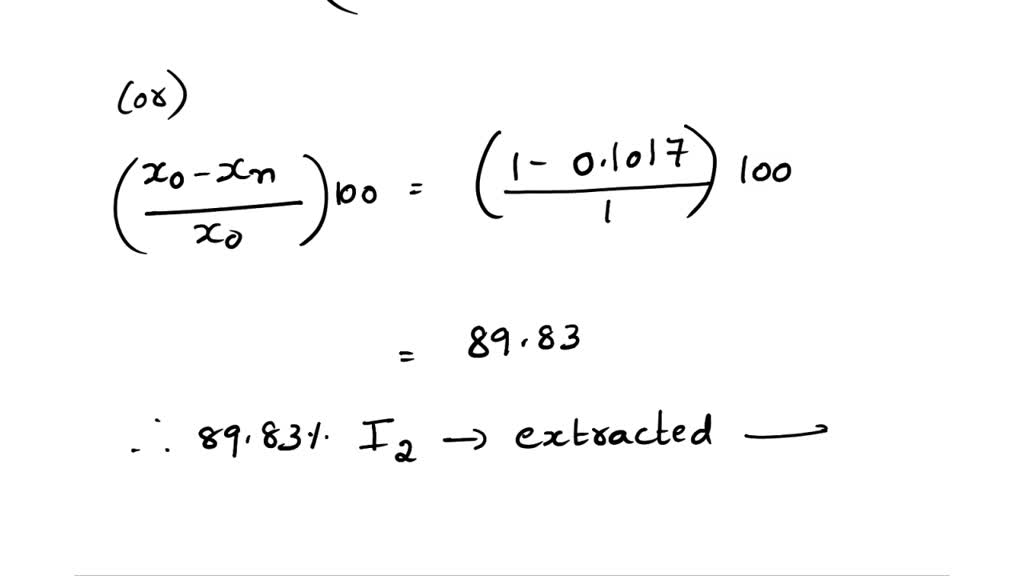 (or)
(x₀ - xₙ / x₀) 100 = (1 - 0.1017 / 1) 100
= 89.83
∴ 89.83% I₂ → extracted →